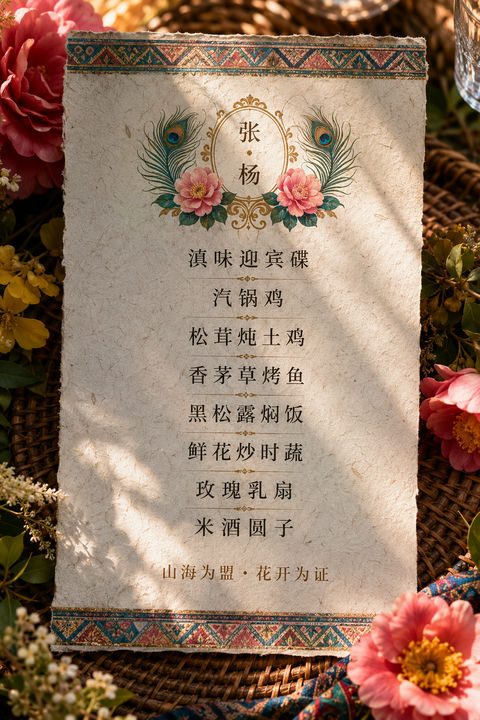 张
·
杨
滇味迎宾碟
汽锅鸡
松茸炖土鸡
香茅草烤鱼
黑松露焖饭
鲜花炒时蔬
玫瑰乳扇
米酒圆子
山海为盟·花开为证